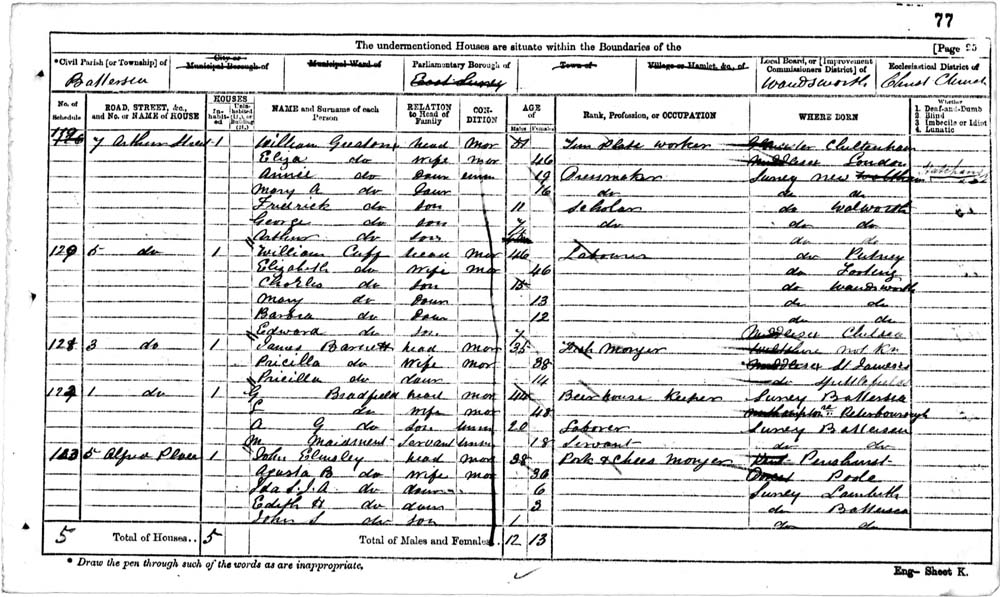 77
The undermentioned Houses are situate within the Boundaries of the
[Page 25
*Civil Parish [or Township] of
Battersea
City or Municipal Borough of
Municipal Ward of
Parliamentary Borough of
East Surrey
Town of
Village or Hamlet, &c., of
Local Board, or [Improvement Commissioners District] of
Wandsworth
Ecclesiastical District of
Christ Church
No. of Schedule
ROAD, STREET, &c., and No. or NAME of HOUSE
HOUSES
In-habit-ed
Unin-habited (U.), or Building (B.)
NAME and Surname of each Person
RELATION to Head of Family
CON-DITION
AGE
Males
Females
Rank, Profession, or OCCUPATION
WHERE BORN
Whether
1. Deaf-and-Dumb
2. Blind
3. Imbecile or Idiot
4. Lunatic
7 Arthur Street 1 William head Mar Tin Plate worker Cheltenham
Eliza do wife mar 46 Middlesex London
Annie do Daur unm 19 Dressmaker Surrey new
Mary A do Daur 16 do do do
Fredrick do son 11 Scholar do Walworth
George do son 7 do do do
Arthur do son do do
129 5 do 1 William Cuff head mar 46 Labourer do Putney
Elizabeth do wife mar 46 do Tooting
Charles do son do Wandsworth
Mary do Daur 13 do do
Barbra do Daur 12 do do
Edward do son 7 Middlesex Chelsea
128 3 do 1 James Barnett head mar 35 Fish Monger not Kn
Pricilla do wife mar 38 Middlesex St Jameses
Pricilla do daur 14 do
1 do 1 G Bradfield head mar 44 Beer house Keeper Surrey Battersea
do wife mar 48 Peterbourough
A G do son unm 20 Laborer Surrey Battersea
M Maidment Servant unm 18 Servant do do
5 Alfred Place 1 John Elmsley head mar 38 Pork & Chees Monger Penshurst
Agusta B. do wife mar 36 Poole
Ida S.J.A. do daur 6 Surrey Lambeth
Edith H do daur 3 do Battersea
John S do son 1 do do
5 Total of Houses.. 5 Total of Males and Females.. 12 13
* Draw the pen through such of the words as are inappropriate.
Eng— Sheet K.